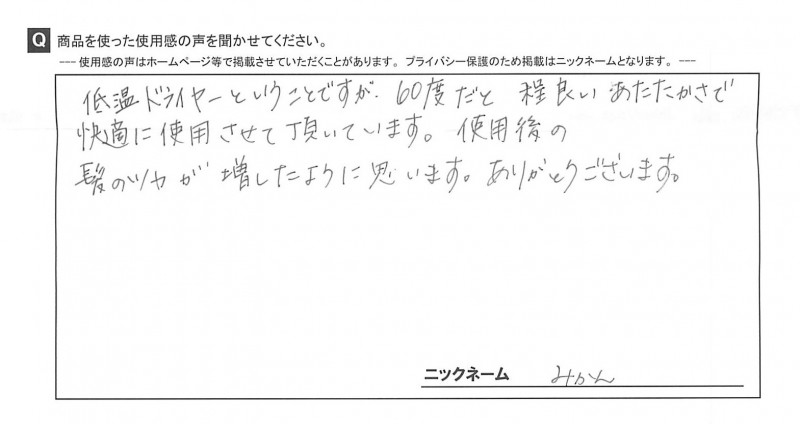 Q 商品を使った使用感の声を聞かせてください。
--- 使用感の声はホームページ等で掲載させていただくことがあります。 プライバシー保護のため掲載はニックネームとなります。 ---
低温ドライヤーということですが、60度だと 程良い あたたかさで
快適に使用させて頂いています。使用後の
髪のツヤが 増したように思います。ありがとうございます。
ニックネーム みかん